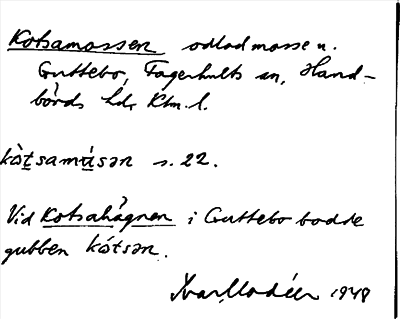 Kotsamossen odlad mosse u.
Guttebo, Fagerhults sn, Hand-
börds hd, Klm. l.
kòt̲samúsən s. 22.
Vid Kotsahågnen i Guttebo bodde
gubben kótsən.
Ivar Modéer 1948